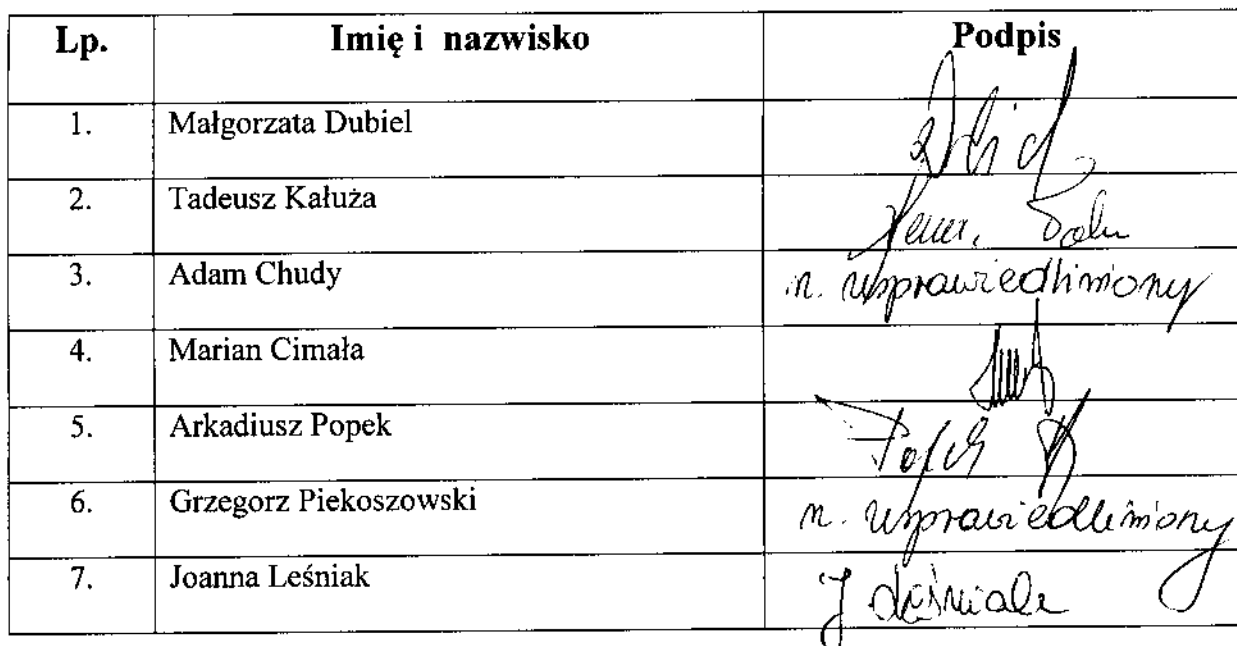 Lp. Imię i nazwisko Podpis
1. Małgorzata Dubiel
2. Tadeusz Kałuża
3. Adam Chudy n. usprawiedliwiony
4. Marian Cimała
5. Arkadiusz Popek
6. Grzegorz Piekoszowski n. usprawiedliwiony
7. Joanna Leśniak J Leśniak